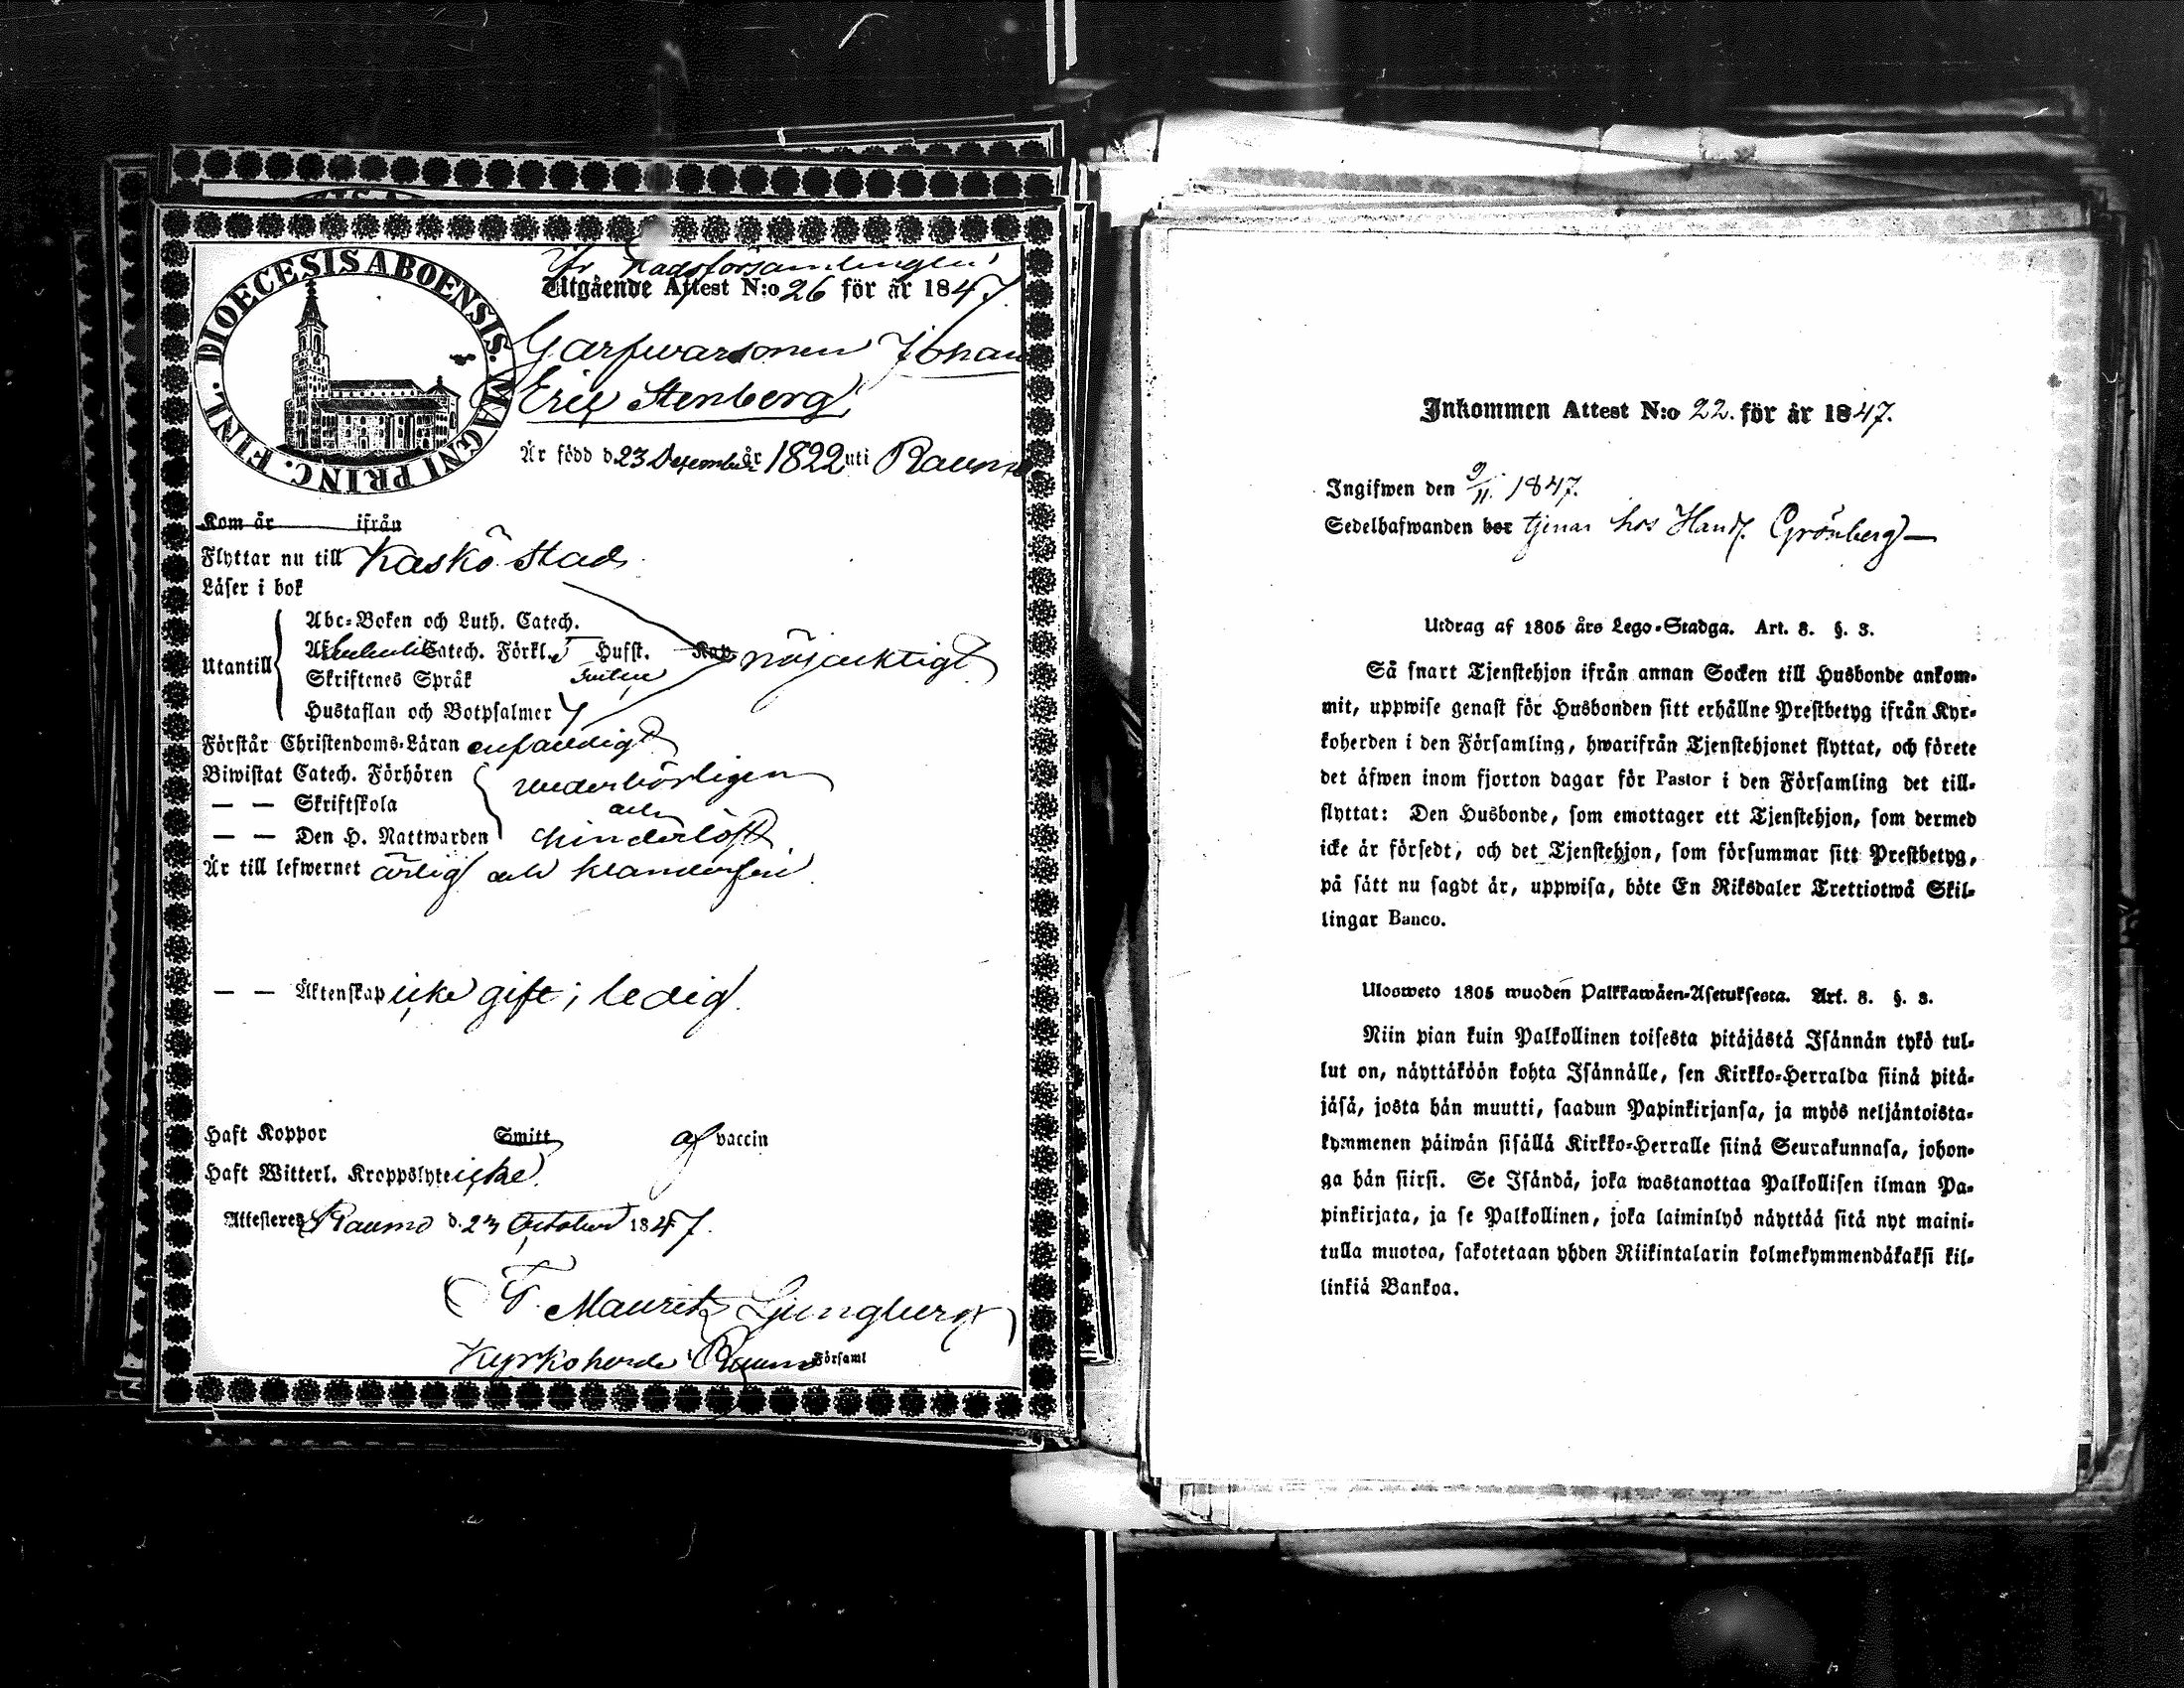 DIOECESIS ABOENSIS. MAGNI PRINC. FINL.
Fr Stadsförsamlingen
Utgående Attest N:o 26 för år 1847.
Garfwarsonen Johan
Eric Stenberg
Är född d. 23 December år 1822 uti Raumo
Kom år ifrån
Flyttar nu till Kaskö Stad
Läser i bok
Utantill
Abc-Boken och Luth. Catech.
Catech. Förkl. Hufst. Kap nöjacktigt
Skriftenes Språk
Hustaflan och Botpsalmer
Förstår Christendoms-Läran enfaldigt
Biwistat Catech. Förhören wederbörligen
— — Skriftskola och
— — Den H. Nattwarden ohinderlöst
Är till lefwernet ärlig och klanderfri
— — Äktenskap icke gift; ledig.
Haft Koppor Smitt af vaccin
Haft Witterl. Kroppslyte icke.
Attesteres Raumo d. 23 October 1847.
F. Mauritz Ljungberg
Kyrkoherde i Raumo Församl
Inkommen Attest N:o 22. för år 1847.
Ingifwen den 9/11. 1847.
Sedelhafwanden bor tjenar hos Handl. Grönberg —
Utdrag af 1805 års Lego-Stadga. Art. 8. §. 3.
Så snart Tjenstehjon ifrån annan Socken till Husbonde ankom-
mit, uppwise genast för Husbonden sitt erhållne Prestbetyg ifrån Kyr-
koherden i den Församling, hwarifrån Tjenstehjonet flyttat, och förete
det äfwen inom fjorton dagar för Pastor i den Församling det till-
flyttat: Den Husbonde, som emottager ett Tjenstehjon, som dermed
icke är försedt, och det Tjenstehjon, som försummar sitt Prestbetyg,
på sätt nu sagdt är, uppwisa, böte En Riksdaler Trettiotwå Skil-
lingar Banco.
Ulosweto 1805 wuoden Palkkawäen-Asetuksesta. Art. 8. §. 3.
Niin pian kuin Palkollinen toisesta pitäjästä Isännän tykö tul-
lut on, näyttäköön kohta Isännälle, sen Kirkko-Herralda siinä pitä-
jäsä, josta hän muutti, saadun Papinkirjansa, ja myös neljäntoista-
kymmenen päiwän sisällä Kirkko-Herralle siinä Seurakunnasa, johon-
ga hän siirsi. Se Isändä, joka wastanottaa Palkollisen ilman Pa-
pinkirjata, ja se Palkollinen, joka laiminlyö näyttää sitä nyt maini-
tulla muotoa, sakotetaan yhden Riikintalarin kolmekymmendäkaksi kil-
linkiä Bankoa.